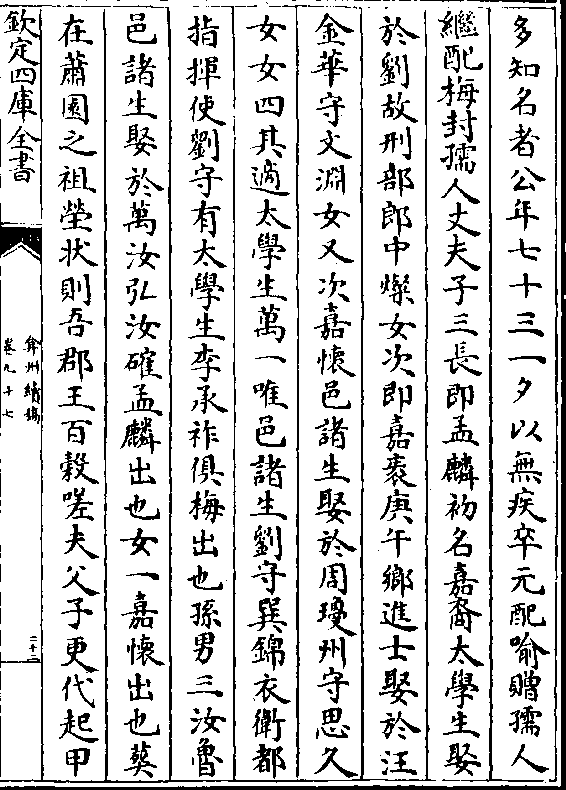 多知名者公年七十三一夕以無疾卒元配喻贈孺人
繼配梅封孺人丈夫子三長即孟麟初名嘉裔太學生娶
於劉故刑部郎中燦女次即嘉袠庚午鄉進士娶於汪
金華守文淵女又次嘉懷邑諸生娶於周瓊州守思久
女女四其適太學生萬一唯邑諸生劉守巽錦衣衛都
指揮使劉守有太學生李承祚俱梅出也孫男三汝魯
邑諸生娶於萬汝弘汝確孟麟出也女一嘉懷出也葬
在蕭園之祖塋状則吾郡王百穀嗟夫父子更代起甲
欽定四庫全書
弇州續稿
卷九十七
二十二